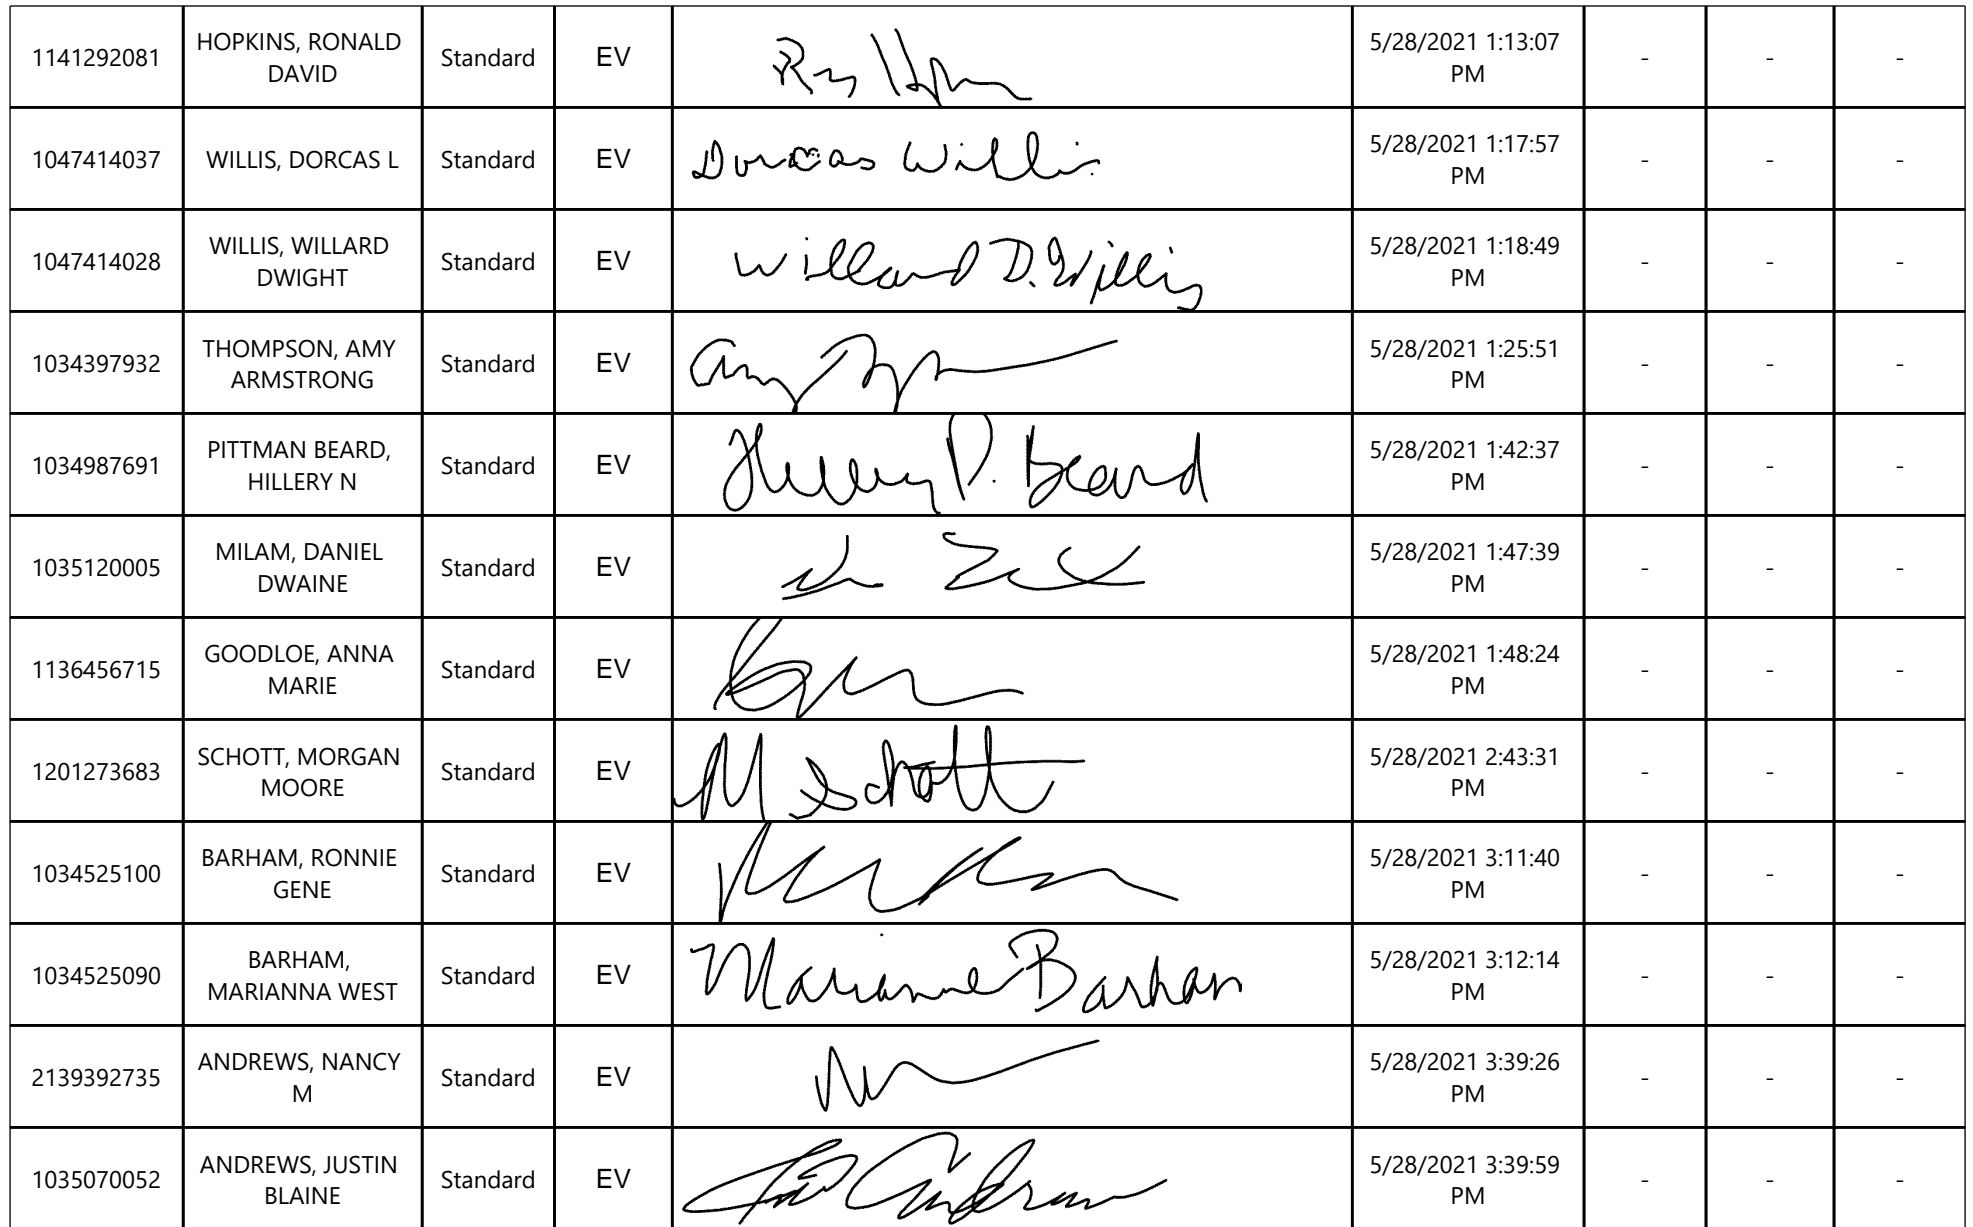 1141292081 HOPKINS, RONALD DAVID Standard EV 5/28/2021 1:13:07 PM - - -
1047414037 WILLIS, DORCAS L Standard EV Dorcas Willis 5/28/2021 1:17:57 PM - - -
1047414028 WILLIS, WILLARD DWIGHT Standard EV Willard D. Willis 5/28/2021 1:18:49 PM - - -
1034397932 THOMPSON, AMY ARMSTRONG Standard EV Amy 5/28/2021 1:25:51 PM - - -
1034987691 PITTMAN BEARD, HILLERY N Standard EV Hillery P. Beard 5/28/2021 1:42:37 PM - - -
1035120005 MILAM, DANIEL DWAINE Standard EV 5/28/2021 1:47:39 PM - - -
1136456715 GOODLOE, ANNA MARIE Standard EV 5/28/2021 1:48:24 PM - - -
1201273683 SCHOTT, MORGAN MOORE Standard EV M Schott 5/28/2021 2:43:31 PM - - -
1034525100 BARHAM, RONNIE GENE Standard EV 5/28/2021 3:11:40 PM - - -
1034525090 BARHAM, MARIANNA WEST Standard EV Marianne Barham 5/28/2021 3:12:14 PM - - -
2139392735 ANDREWS, NANCY M Standard EV 5/28/2021 3:39:26 PM - - -
1035070052 ANDREWS, JUSTIN BLAINE Standard EV 5/28/2021 3:39:59 PM - - -